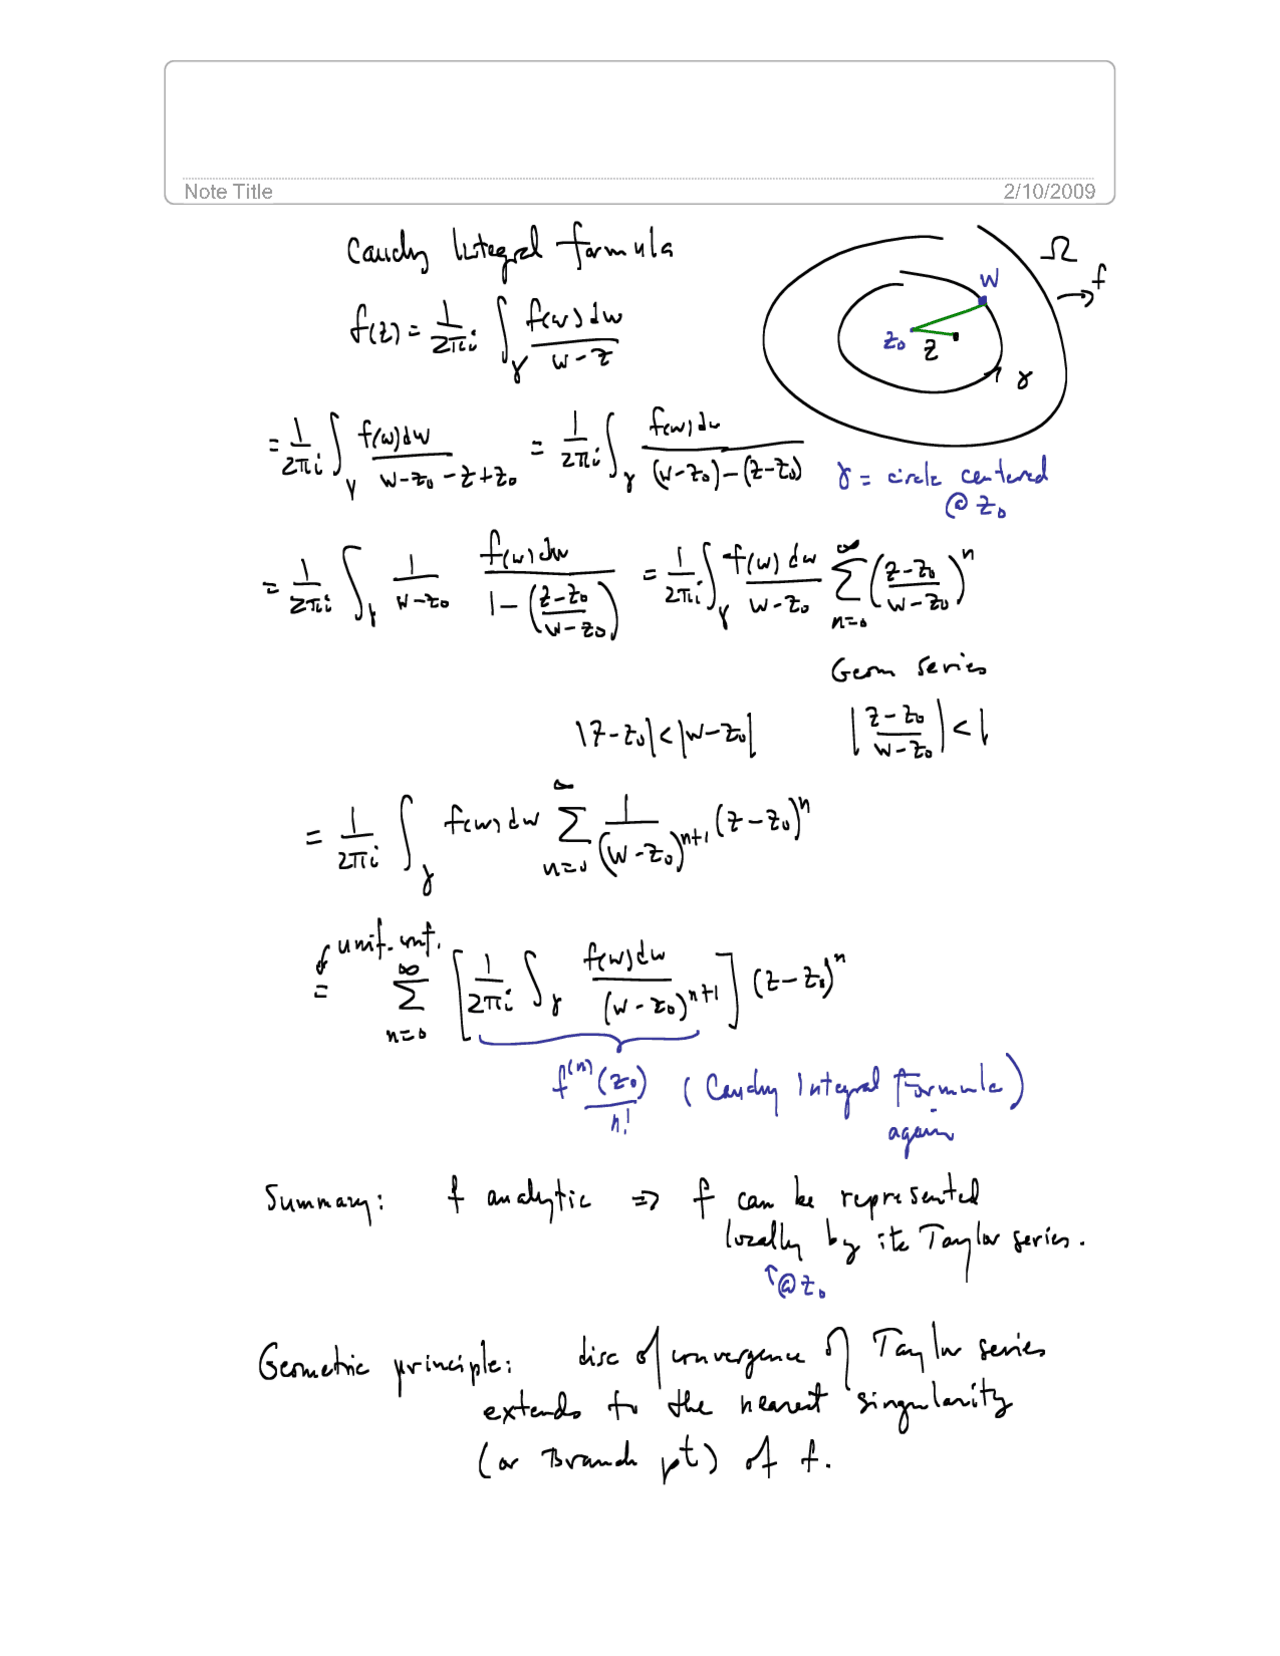 Note Title 2/10/2009
Cauchy Integral formula
f(z) = 1/2πi ∫_γ f(w)dw/(w-z)
Ω
f
w
z₀ z
γ
= 1/2πi ∫_γ f(w)dw/(w-z₀-z+z₀) = 1/2πi ∫_γ f(w)dw/((w-z₀)-(z-z₀))
γ = circle centered
@ z₀
= 1/2πi ∫_γ 1/(w-z₀) f(w)dw/(1-((z-z₀)/(w-z₀))) = 1/2πi ∫_γ f(w)dw/(w-z₀) ∑_{n=0}^∞ ((z-z₀)/(w-z₀))^n
Geom series
|z-z₀|<|w-z₀| |(z-z₀)/(w-z₀)| < 1
= 1/2πi ∫_γ f(w)dw ∑_{n=0}^∞ 1/(w-z₀)^{n+1} (z-z₀)^n
unif. cnf.
= ∑_{n=0}^∞ [1/2πi ∫_γ f(w)dw/(w-z₀)^{n+1}] (z-z₀)^n
f^{(n)}(z₀)/n! (Cauchy Integral Formula)
again
Summary: f analytic ⇒ f can be represented
locally by its Taylor series.
↑@z₀
Geometric principle: disc of convergence of Taylor series
extends to the nearest singularity
(or Branch pt) of f.